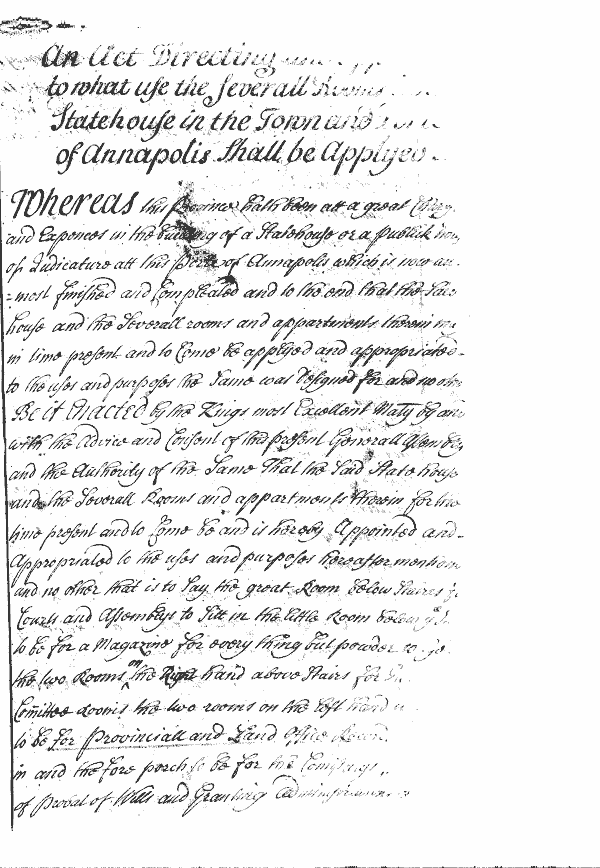 An Act Directing
to what use the severall Rooms
Statehouse in the Town and
of Annapolis Shall be Applyed
Whereas this Province hath been att a great Charg
and Expences in the building of a Statehouse or a publick
of Judicature att this Port of Annapolis which is now al
=most finished and Compleated and to the end that the said
house and the Severall rooms and appartments therein
in time present and to Come be applyed and appropriated
to the uses and purposes the Same was designed for and no other
Be it Enacted by the Kings most Excellent Maty by and
with the Advice and Consent of this present Generall Assembly
and the Authority of the Same That the Said State house
and the Severall Rooms and appartments therein for the
time present and to Come be and is hereby Appointed and
Appropriated to the uses and purposes hereafter mention
and no other that is to Say the great Room below Staires
Courts and Assemblys to Sitt in the little Room below
to be for a Magazine for every thing but powder
the two Rooms on the Right hand above Stairs for
Comittee Rooms the two rooms on the left hand
to be for Provinciall and Land Office
in and the fore porch to be for the
of Probat of Wills and Granting